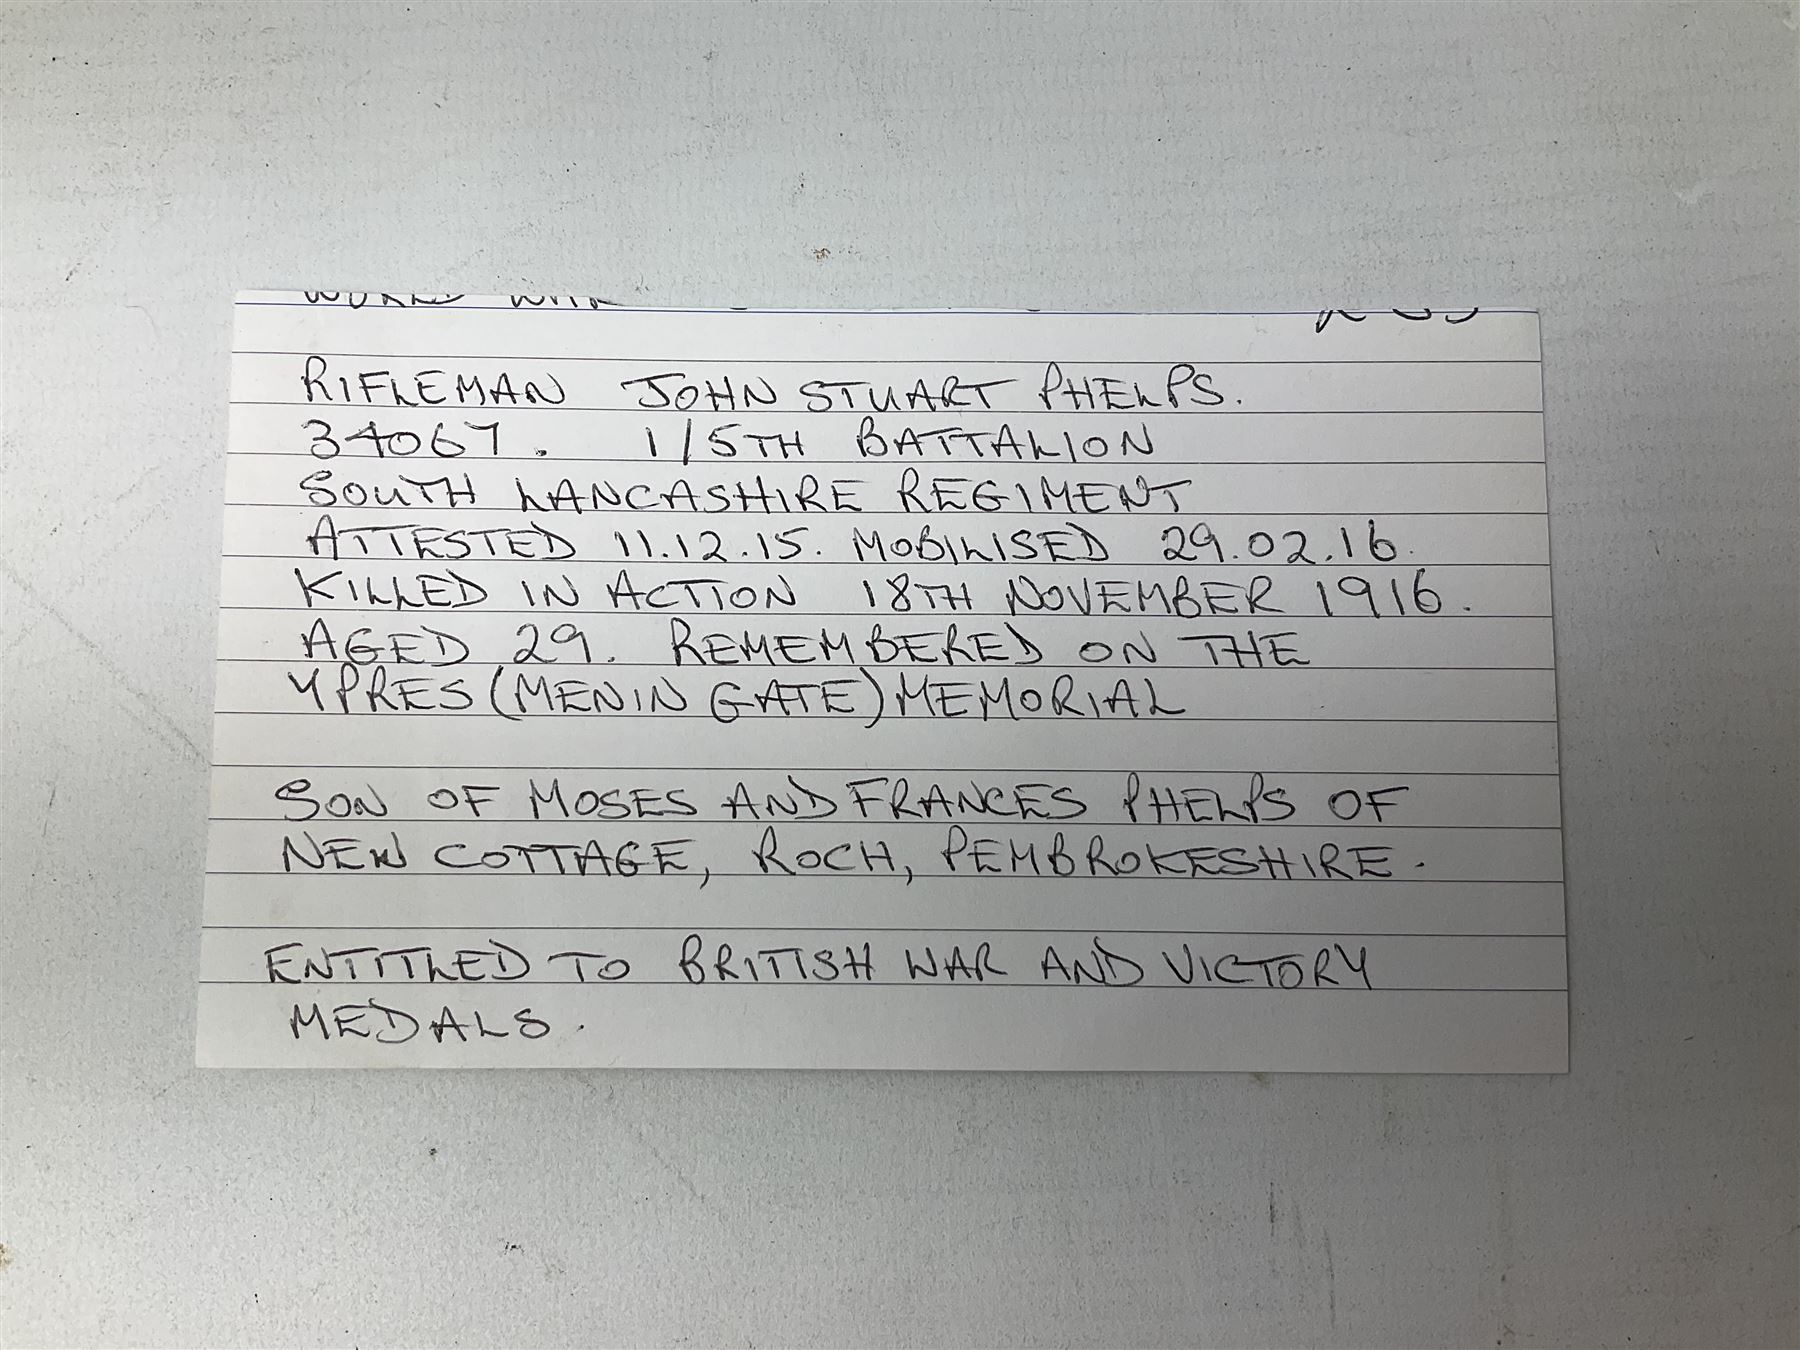 RIFLEMAN JOHN STUART PHELPS.
34067. 1/5TH BATTALION
SOUTH LANCASHIRE REGIMENT
ATTESTED 11.12.15. MOBILISED 29.02.16.
KILLED IN ACTION 18TH NOVEMBER 1916.
AGED 29. REMEMBERED ON THE
YPRES (MENIN GATE) MEMORIAL
SON OF MOSES AND FRANCES PHELPS OF
NEW COTTAGE, ROCH, PEMBROKESHIRE.
ENTITLED TO BRITISH WAR AND VICTORY
MEDALS.